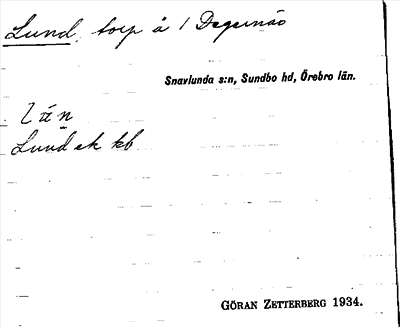 Lund, torp å 1 Degernäs
Snavlunda s:n, Sundbo hd, Örebro län.
Lund ek kb
GÖRAN ZETTERBERG 1934.